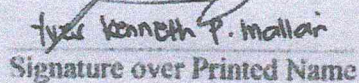 Yves Kenneth P. Mallari
Signature over Printed Name